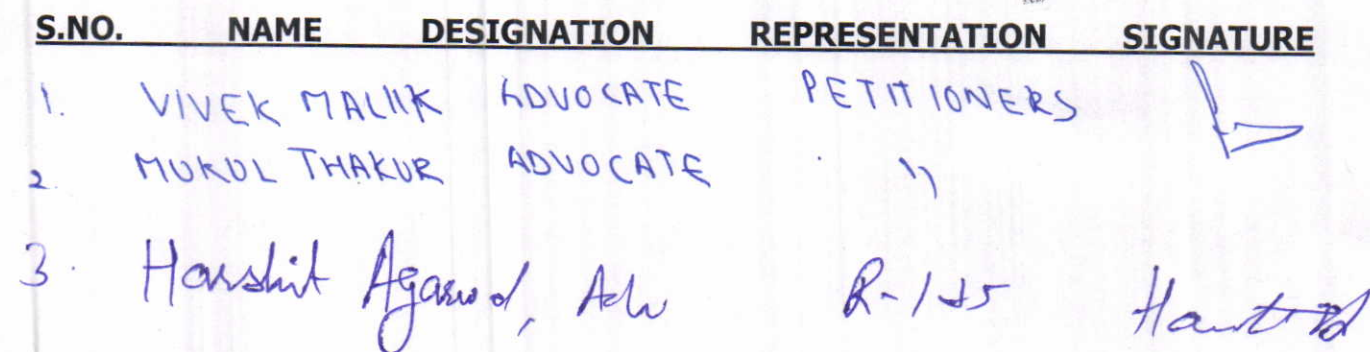 S.NO. NAME DESIGNATION REPRESENTATION SIGNATURE
1. VIVEK MALIIK ADVOCATE PETITIONERS
2. MUKUL THAKUR ADVOCATE "
3. Harshit Agarwal, Adv R-1 to 5